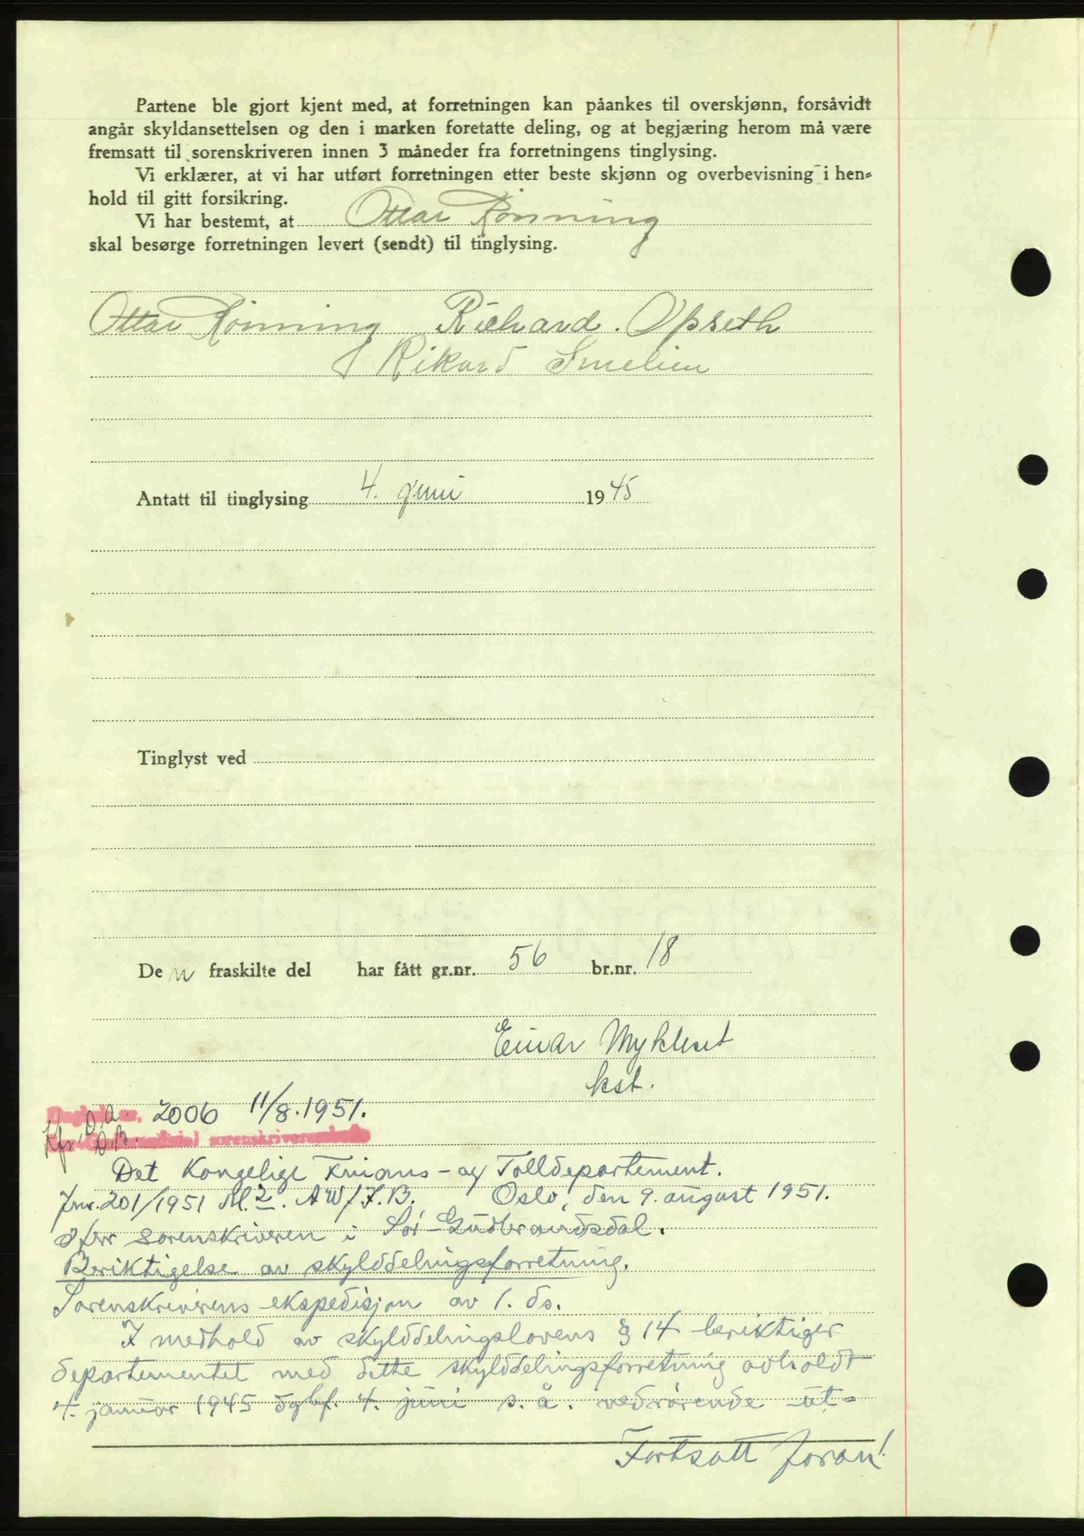 Partene ble gjort kjent med, at forretningen kan påankes til overskjønn, forsåvidt
angår skyldansettelsen og den i marken foretatte deling, og at begjæring herom må være
fremsatt til sorenskriveren innen 3 måneder fra forretningens tinglysing.
Vi erklærer, at vi har utført forretningen etter beste skjønn og overbevisning i hen-
hold til gitt forsikring.
Vi har bestemt, at Ottar Rönning
skal besørge forretningen levert (sendt) til tinglysing.
Ottar Rönning Richard. Opseth
Rikard Smelien
Antatt til tinglysing 4. juni 1945
Tinglyst ved
Den fraskilte del har fått gr.nr. 56 br.nr. 18
Einar Myklest
kst.
2006 11/8.1951.
Kfr. sorenskriverembede
Det Kongelige Finans- og Tolldepartement.
Jnr. 201/1951 M.2. AW/J.B. Oslo, den 9. august 1951.
Herr sorenskriveren i Sør-Gudbrandsdal.
Beriktigelse av skylddelingsforretning.
Sorenskriverens ekspedisjon av 1. ds.
I medhold av skylddelingslovens § 14 beriktiger
departementet med dette skylddelingsforretning avholdt
4. januar 1945 dgbf. 4. juni s. å. vedrørende ut-
Fortsatt foran!